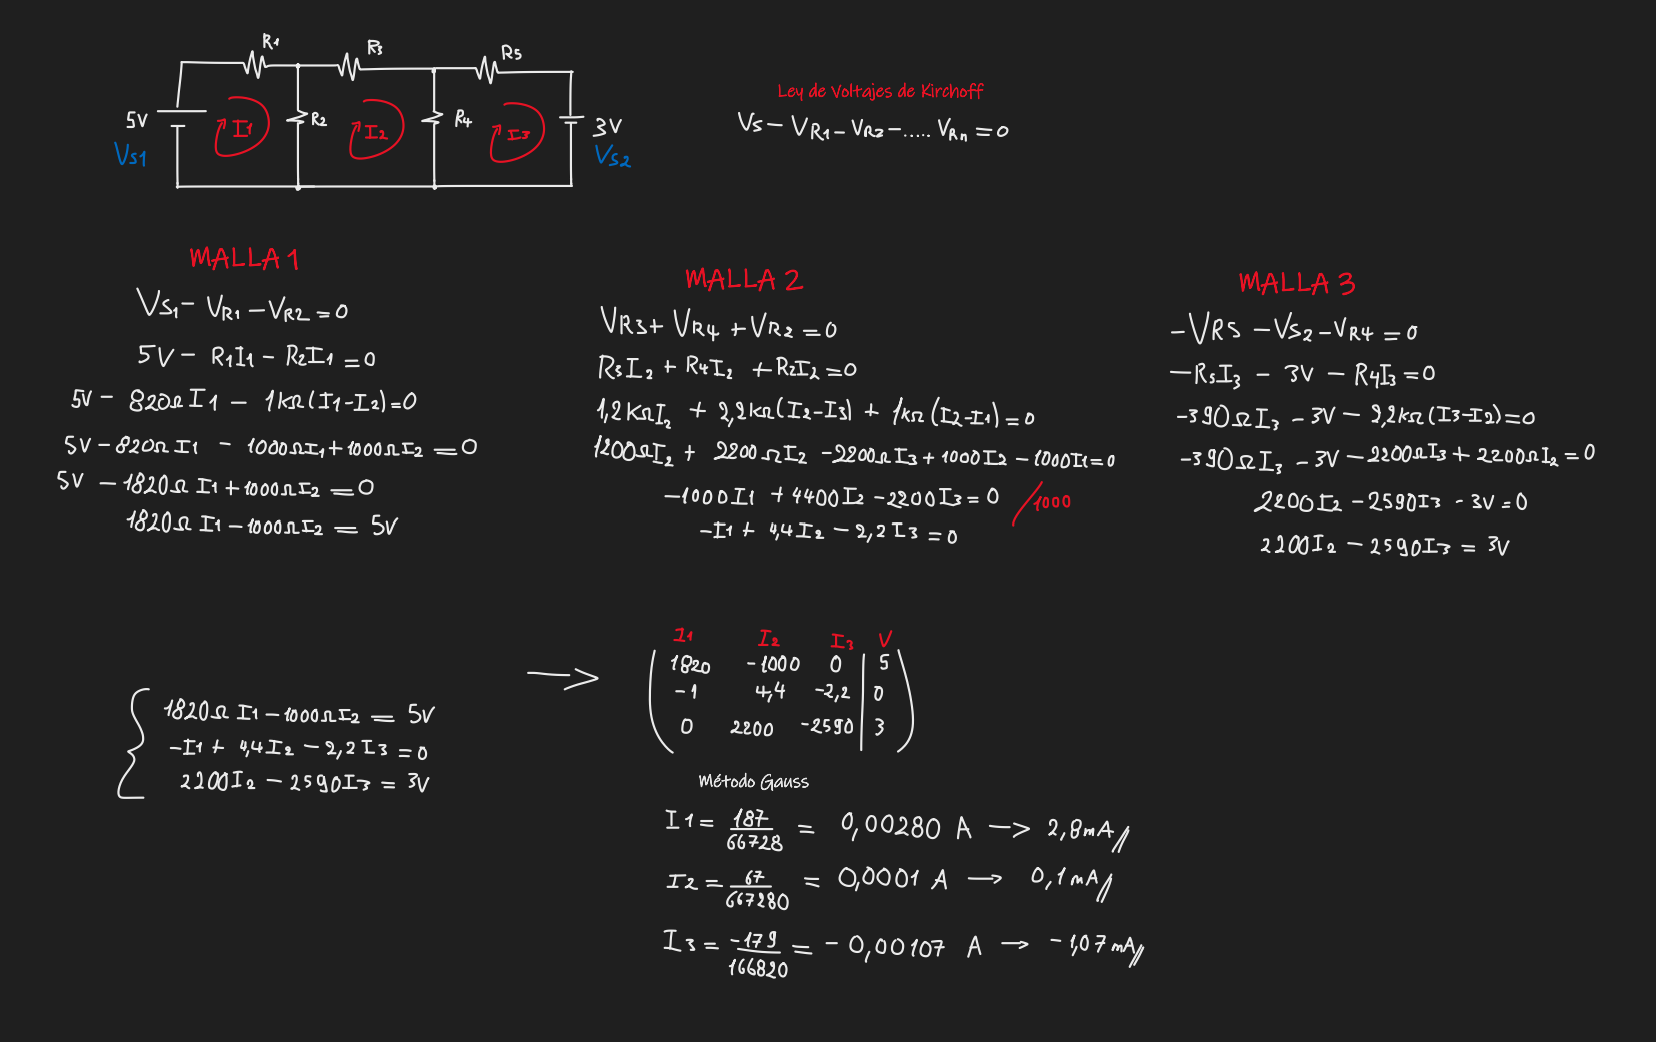 R1 R3 R5
5V I1 R2 I2 R4 I3 3V
Vs1 Vs2
Ley de Voltajes de Kirchoff
Vs - VR1 - VR2 - ..... VRn = 0
MALLA 1
Vs1 - VR1 - VR2 = 0
5V - R1I1 - R2I1 = 0
5V - 820Ω I1 - 1kΩ(I1-I2)=0
5V - 820Ω I1 - 1000ΩI1 + 1000ΩI2 = 0
5V - 1820Ω I1 + 1000ΩI2 = 0
1820Ω I1 - 1000ΩI2 = 5V
MALLA 2
VR3 + VR4 + VR2 = 0
R3I2 + R4I2 + R2I2 = 0
1,2KΩI2 + 2,2kΩ(I2-I3) + 1kΩ(I2-I1) = 0
1200ΩI2 + 2200ΩI2 - 2200ΩI3 + 1000I2 - 1000I1 = 0
-1000I1 + 4400I2 - 2200I3 = 0 /1000
-I1 + 4,4I2 - 2,2I3 = 0
MALLA 3
-VR5 - Vs2 - VR4 = 0
-R5I3 - 3V - R4I3 = 0
-390ΩI3 - 3V - 2,2kΩ(I3-I2) = 0
-390ΩI3 - 3V - 2200ΩI3 + 2200ΩI2 = 0
2200I2 - 2590I3 - 3V = 0
2200I2 - 2590I3 = 3V
1820Ω I1 - 1000ΩI2 = 5V
-I1 + 4,4I2 - 2,2I3 = 0
2200I2 - 2590I3 = 3V
I1 I2 I3 V
1820 -1000 0 | 5
-1 4,4 -2,2 | 0
0 2200 -2590 | 3
Método Gauss
I1 = 187/66728 = 0,00280 A → 2,8mA
I2 = 67/667280 = 0,0001 A → 0,1mA
I3 = -179/166820 = -0,00107 A → -1,07mA